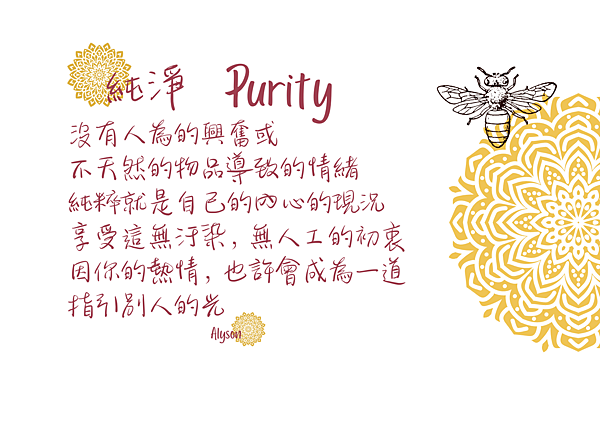 純淨 Purity
沒有人為的興奮或
不天然的物品導致的情緒
純粹就是自己的內心的現況
享受這無汙染，無人工的初衷
因你的熱情，也許會成為一道
指引別人的光
Alyson